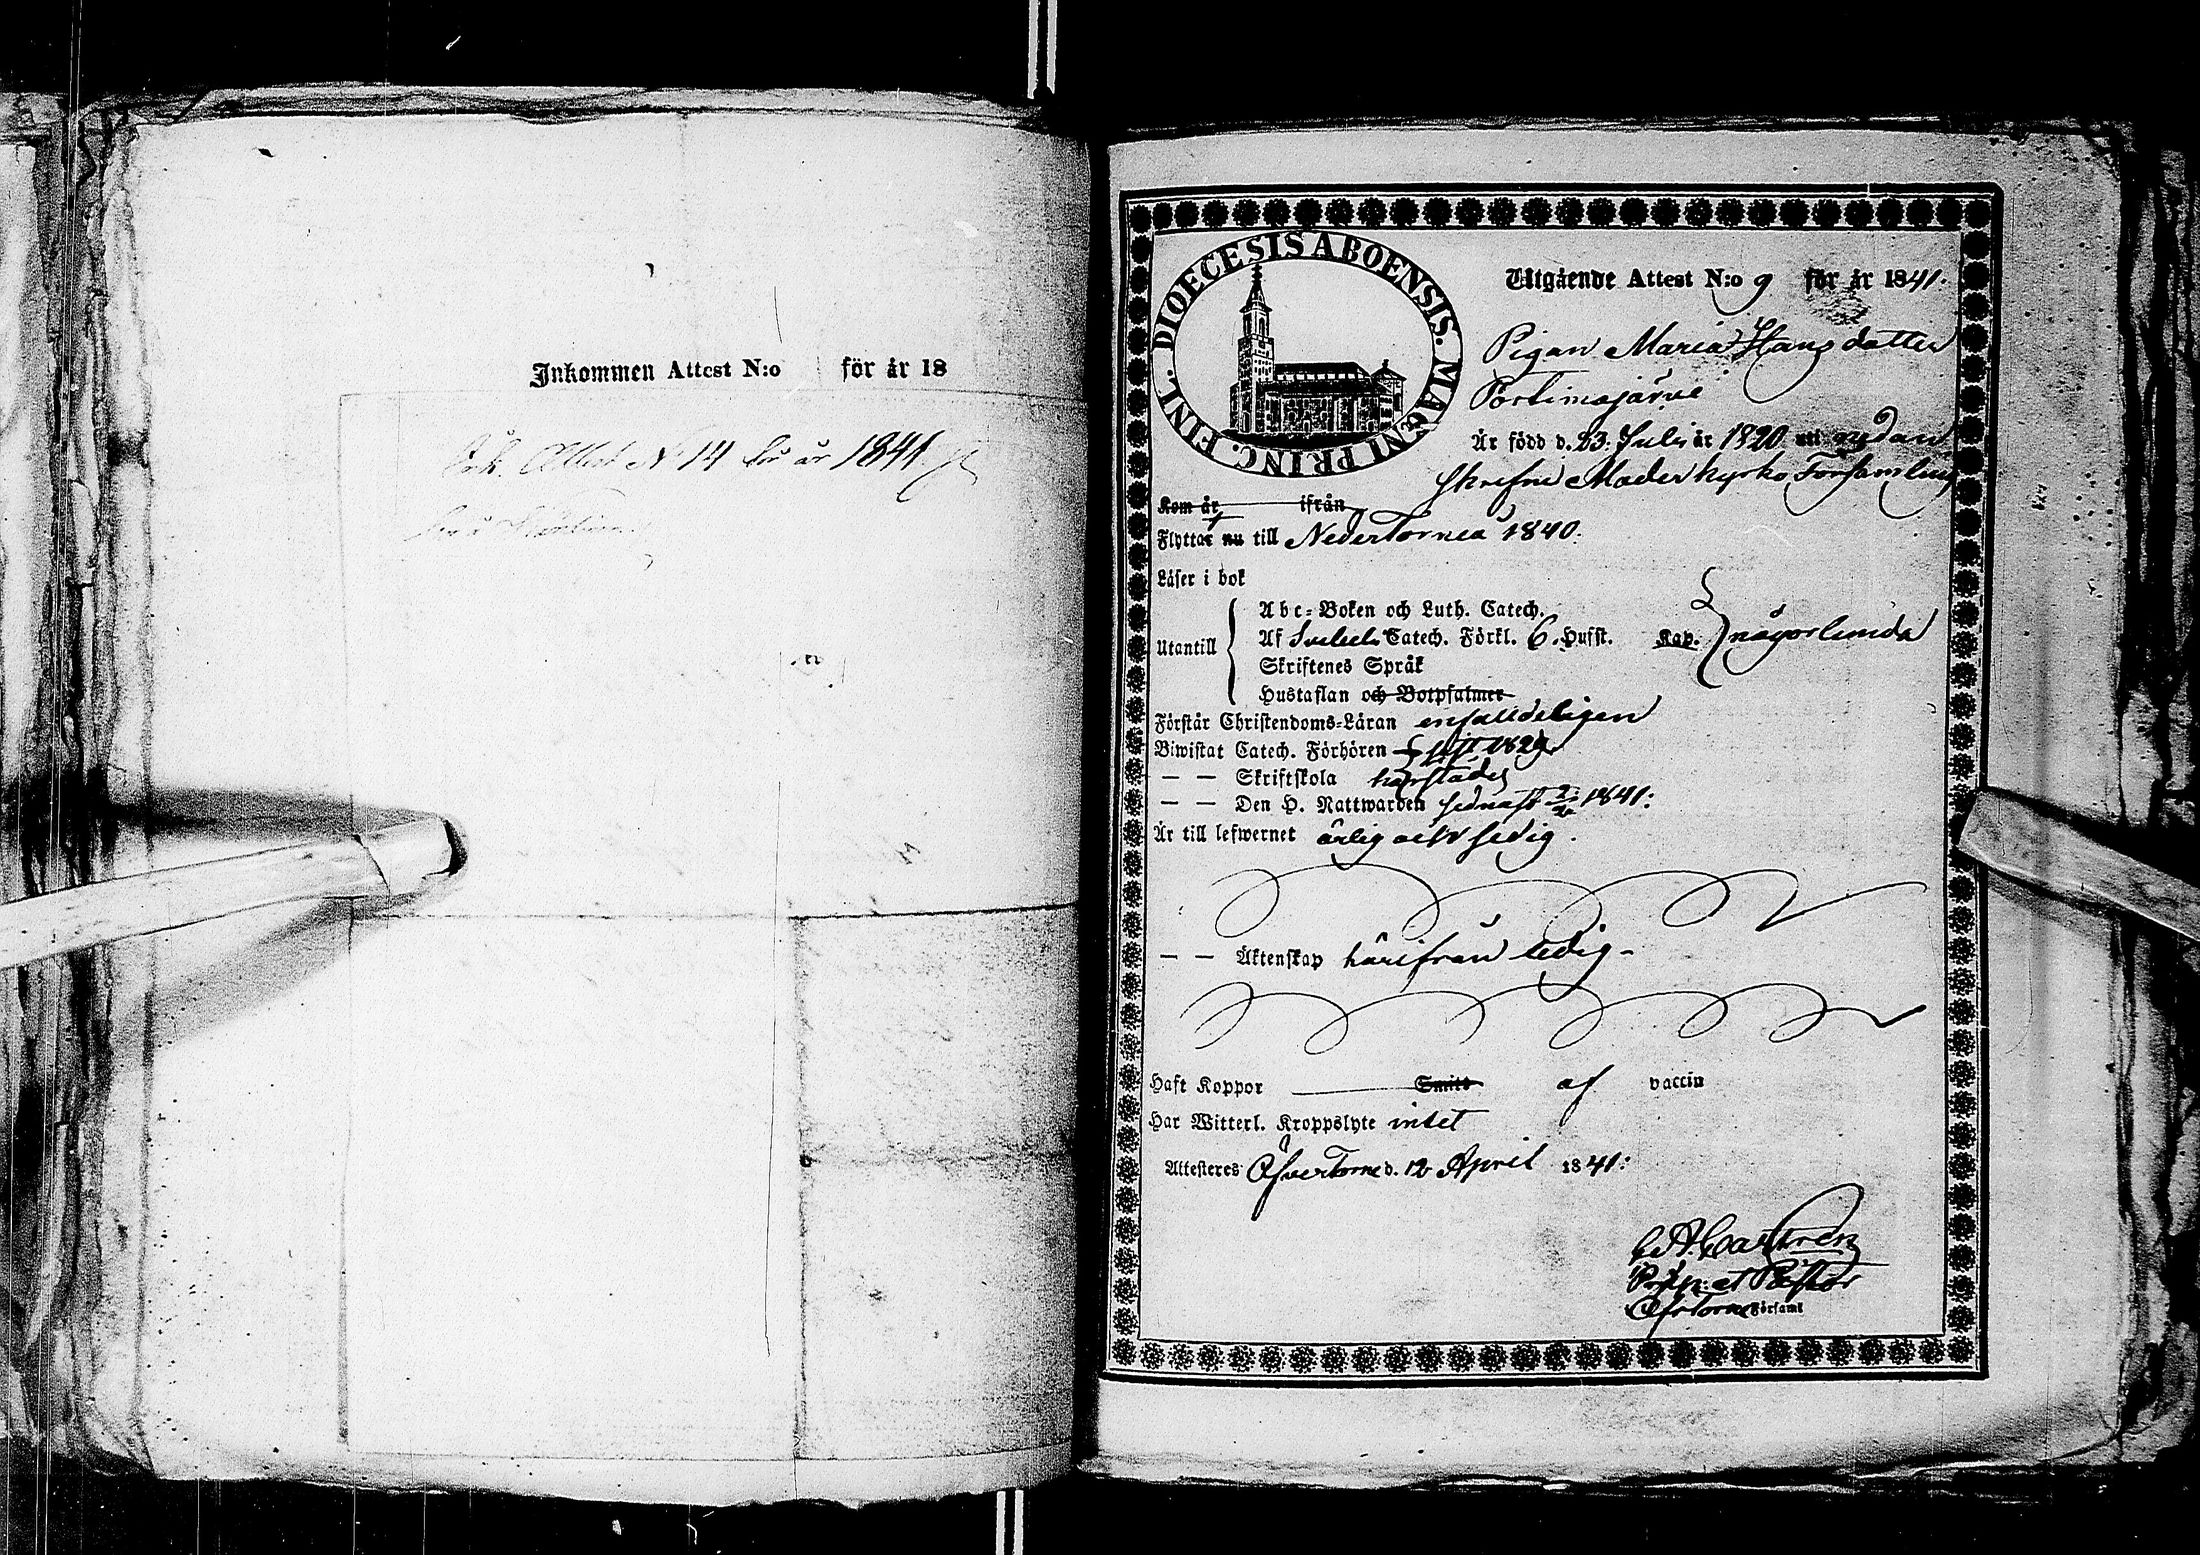 Inkommen Attest N:o för år 18
Ink. Attest N 14 för år 1841
DIOECESIS ABOENSIS. MAGNI PRINC. FINL.
Utgående Attest N:o 9 för år 1841.
Pigan Maria Hansdotter
Portimojärvi
Är född d. 23. Juli år 1820 uti nedan
skrefne Moderkyrko Församling
Kom år ifrån
Flyttat nu till NederTorneå 1840.
Läser i bok
Abc-Boken och Luth. Catech.
Utantill
Af Svebel. Catech. Förkl. 6. Hufst. Kap. någorlunda
Skriftenes Språk
Hustaflan och Botpsalmer
Förstår Christendoms-Läran enfalldeligen
Biwistat Catech. Förhören
— — Skriftskola härstädes
— — Den H. Nattwarden sednast 1841.
Är till lefwernet ärlig och sedig.
— — Äktenskap härifrån ledig
Haft Koppor Smitt af vaccin
Har Witterl. Kroppslyte intet
Attesteres ÖfverTorne d. 12 April 1841.
C A Castrén
Prep: et Pastor
ÖfrTorne Församl